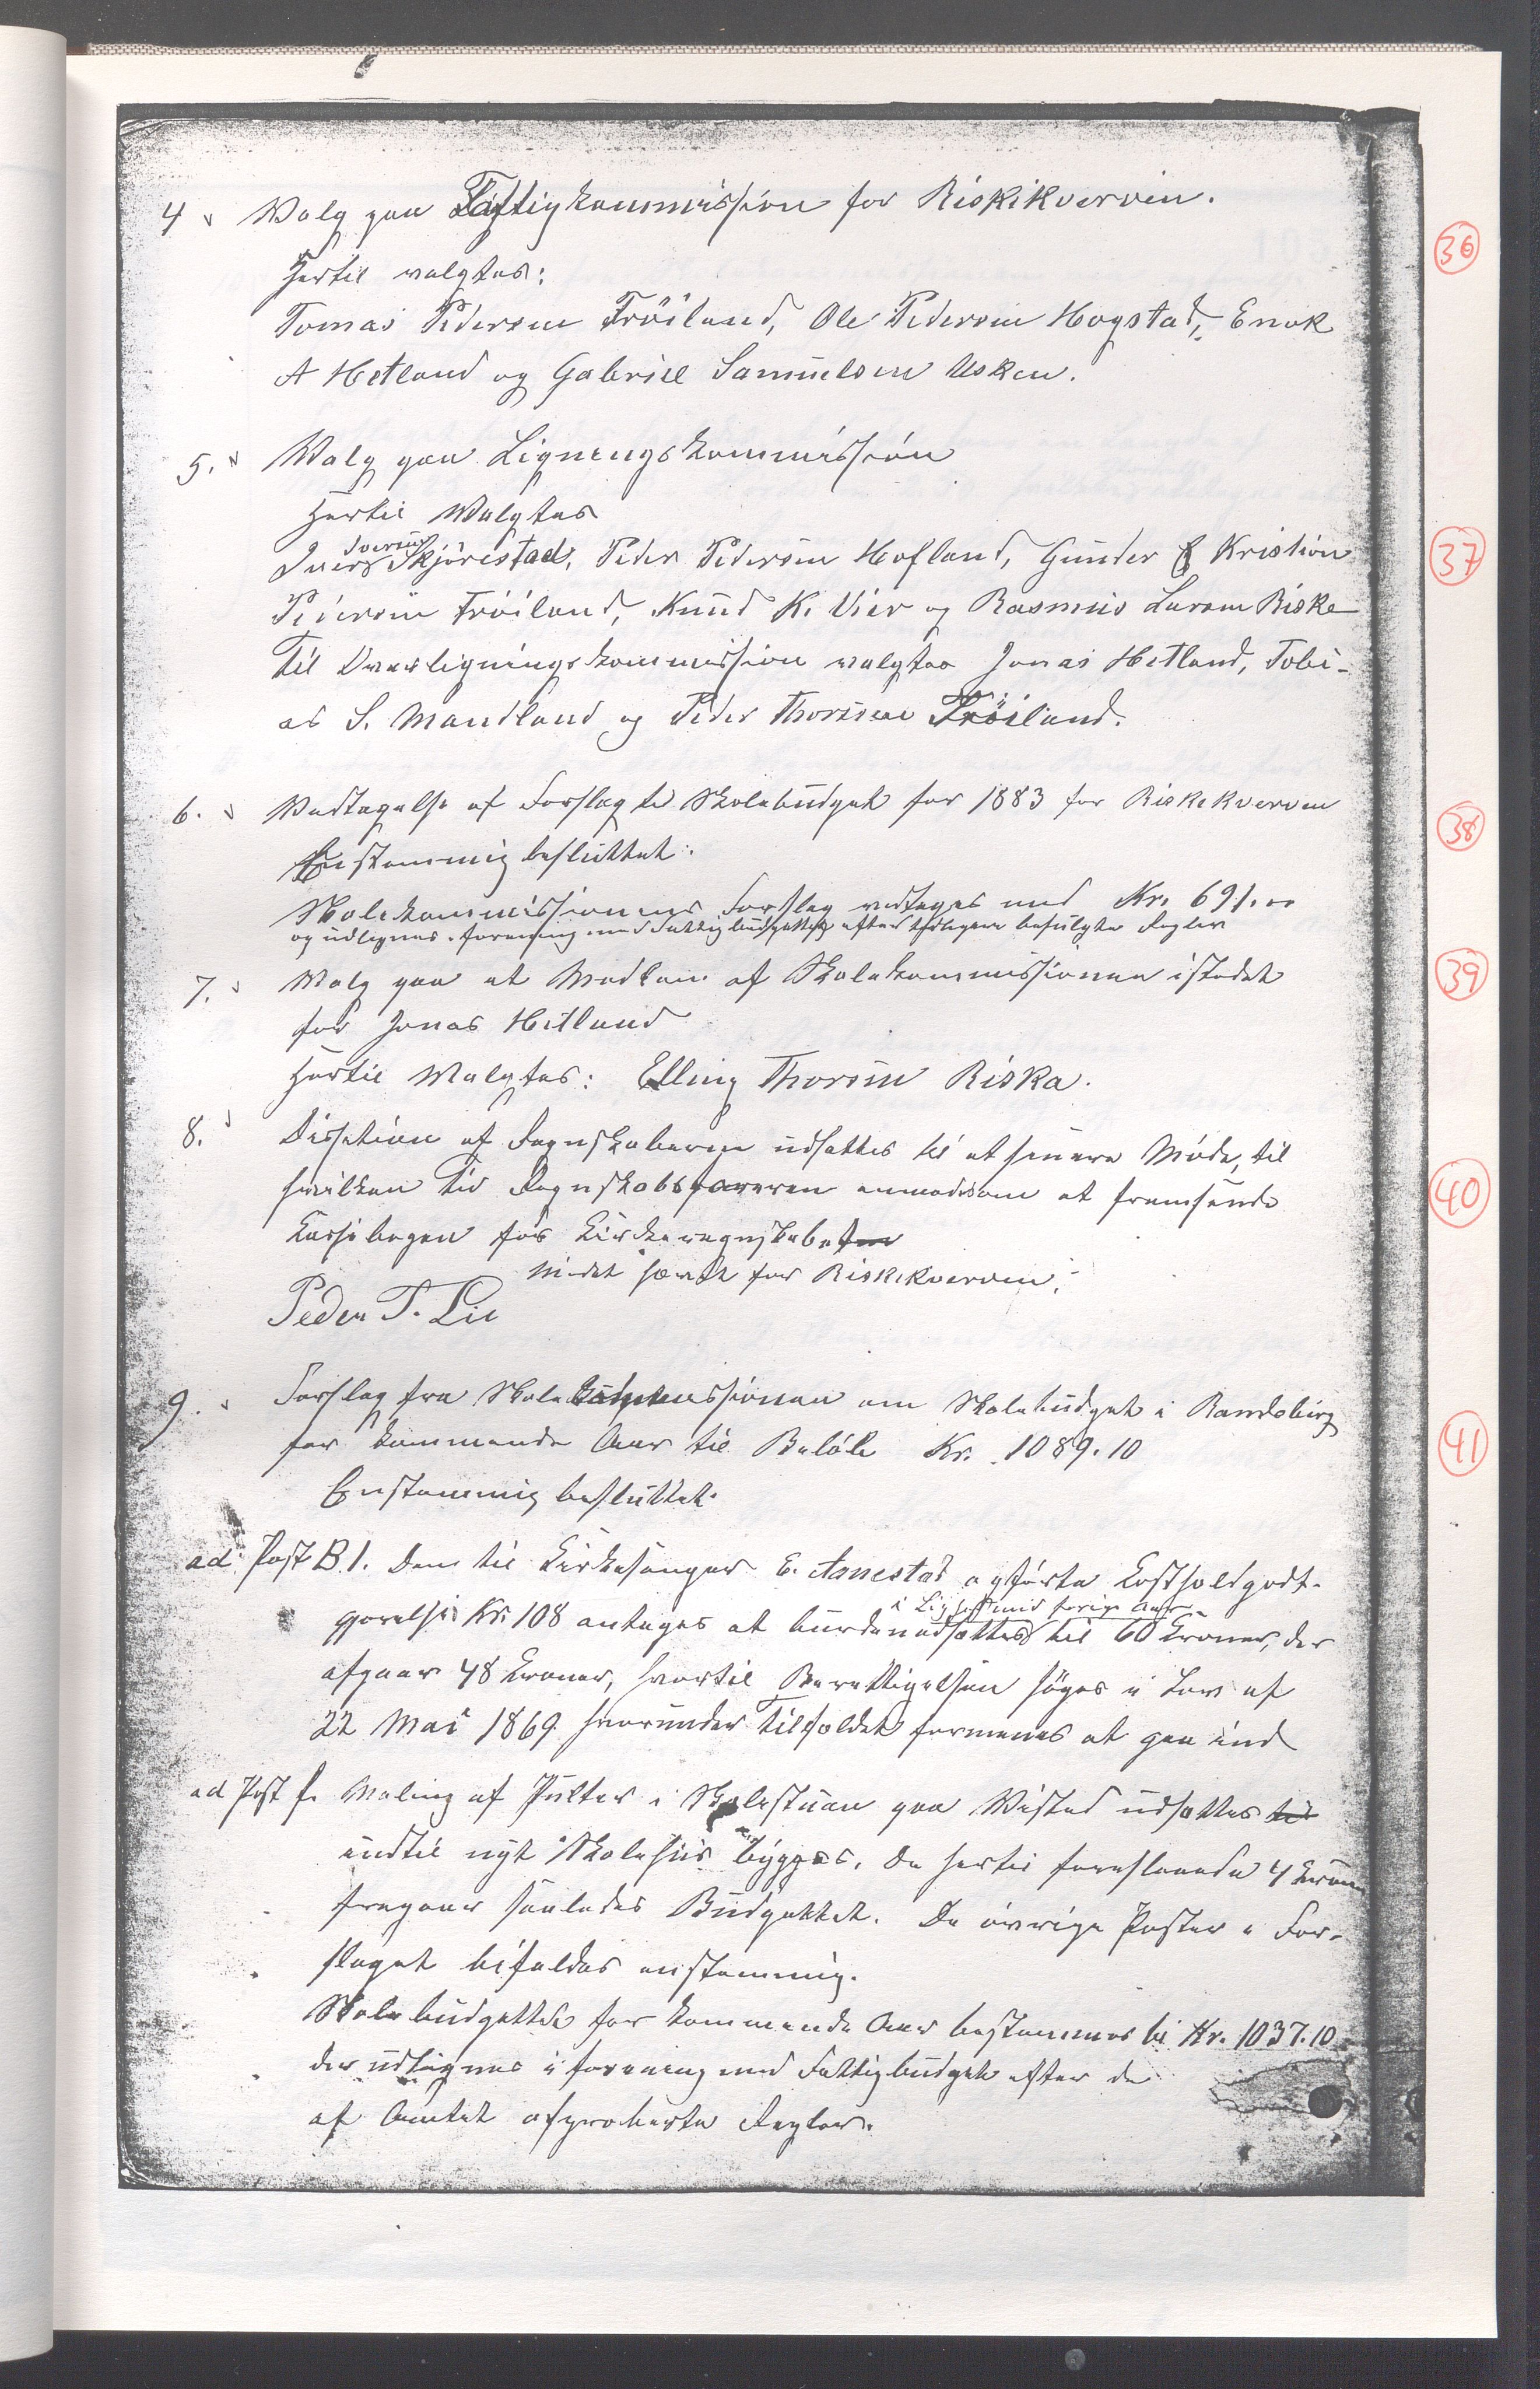 4 Valg paa Fattigkommission for Riskekverven.
Hertil valgtes:
Tomas Pedersen Fröiland, Ole Pedersen Hogstad, Enok
A Hetland og Gabriel Samuelsen Usken.
36
5. Valg paa Ligningskommission
Hertil Valgtes
Iversen
Iver Skjörestad, Peder Pedersen Hofland, Gunder Kristian
37
Pedersen Fröiland, Knud K. Lier og Rasmus Larsen Riske
Til Overligningskommission valgtes Jonas Hetland, Tobi-
as S. Mandland og Peder Thorsen Fröiland.
6. Vedtagelse af Forslag til Skolebudget for 1883 for Riskekverven
38
Enstemmig besluttet:
Skolekommissionens Forslag vedtages med Kr. 691.00
og udlignes i forening med Fattigbudgettet efter tidligere befulgte Regler
7. Valg paa et Medlem af Skolekommissionen istedet
39
for Jonas Hetland
Hertil Valgtes: Elling Thorsen Riska.
8. Desition af Regnskaberne udsættes til et senere Møde, til
hvilken Tid Regnskabsføreren anmodes om at fremsende
40
Kassebogen for Kirkeregnskabet
Mødet hævet for Riskekverven.
Peder T. Lie
9. Forslag fra Skolekommissionen om Skolebudget i Randeberg
41
for kommende Aar til Beløb Kr. 1089.10
Enstemmig besluttet:
ad Post B.1. Den til Kirkesanger E. Asnestad opførte Kostholdgodt-
i Lighed med forige Aar
gjørelse Kr. 108 antages at burde nedsættes til 60 Kroner, der
afgaar 48 Kroner, hvortil Berettigelsen søges i Lov af
22 Mai 1869 hvorunder Tilfældet formenes at gaa ind
ad Post f. Maling af Pulter i Skolestuen paa Visted udsættes til
indtil nyt Skolehus bygges, de hertil foreslaaede 4 Kroner
fragaar saaledes Budgettet. De øvrige Poster i For-
slaget bifaldes enstemmig.
Skolebudgettet for kommende Aar bestemmes til Kr. 1037.10
der udlignes i forening med Fattigbudget efter de
af Amtet approberte Regler.